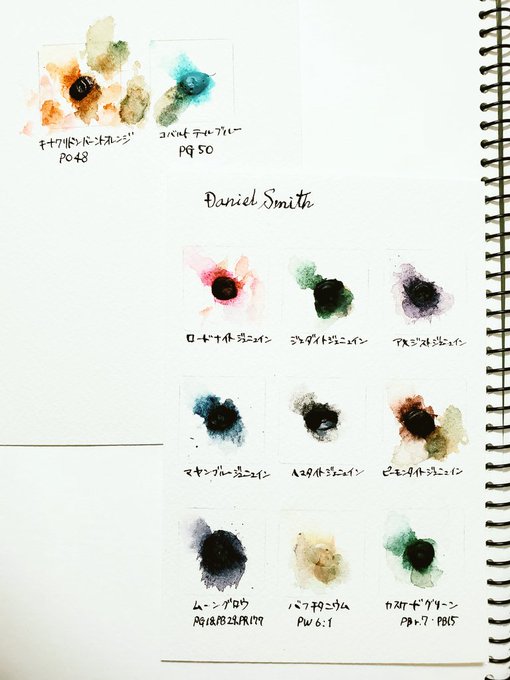 キナクリドンバーントオレンジ
PO48
コバルトティールブルー
PG50
Daniel Smith
ロードナイトジェニュイン
ジェダイトジェニュイン
アメジストジェニュイン
マヤンブルージェニュイン
ヘマタイトジェニュイン
ピーモンタイトジェニュイン
ムーングロウ
PG18,PB29,PR177
バフチタニウム
PW6:1
カスケードグリーン
PBr.7・PB15